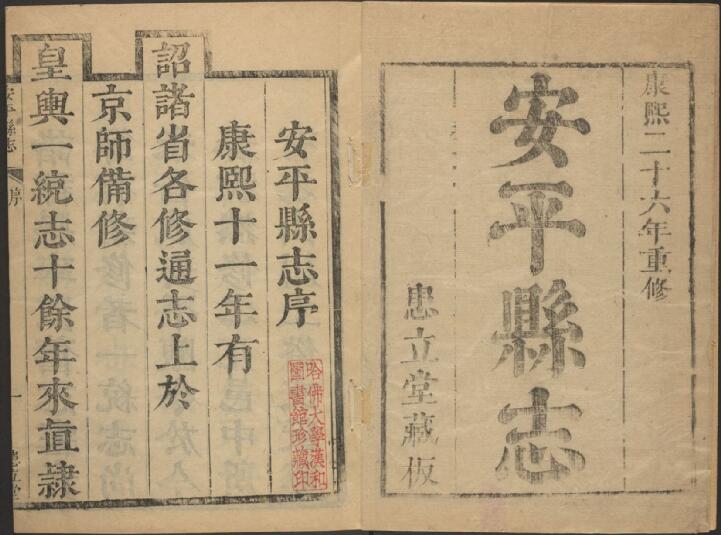 康熙二十六年重修
安平縣志
忠立堂藏板
安平縣志序
康熙十一年有
詔諸省各修通志上於
京師備修
皇輿一統志十餘年來直隸
哈佛大學漢和
圖書館珍藏印
安平縣志
序
一
忠立堂